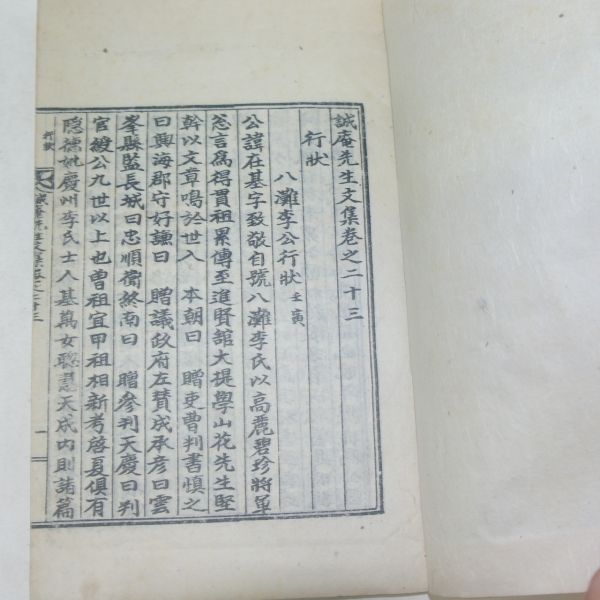 誠庵先生文集卷之二十三
行狀
八灘李公行狀 壬寅
公諱在基字致敬自號八灘李氏以高麗碧珍將軍
忩言爲得貫祖累傳至進賢館大提學山花先生堅
幹以文章鳴於世入 本朝曰 贈吏曹判書愼之
曰興海郡守好謙曰 贈議政府左賛成承彦曰雲
峯縣監長城曰忠順衛終南曰 贈參判天慶曰判
官綬公九世以上也曾祖宜甲祖相新考啓夏俱有
隱德妣慶州李氏士人基萬女聰慧天成內則諸篇
行狀
誠庵先生文集卷之二十三
一